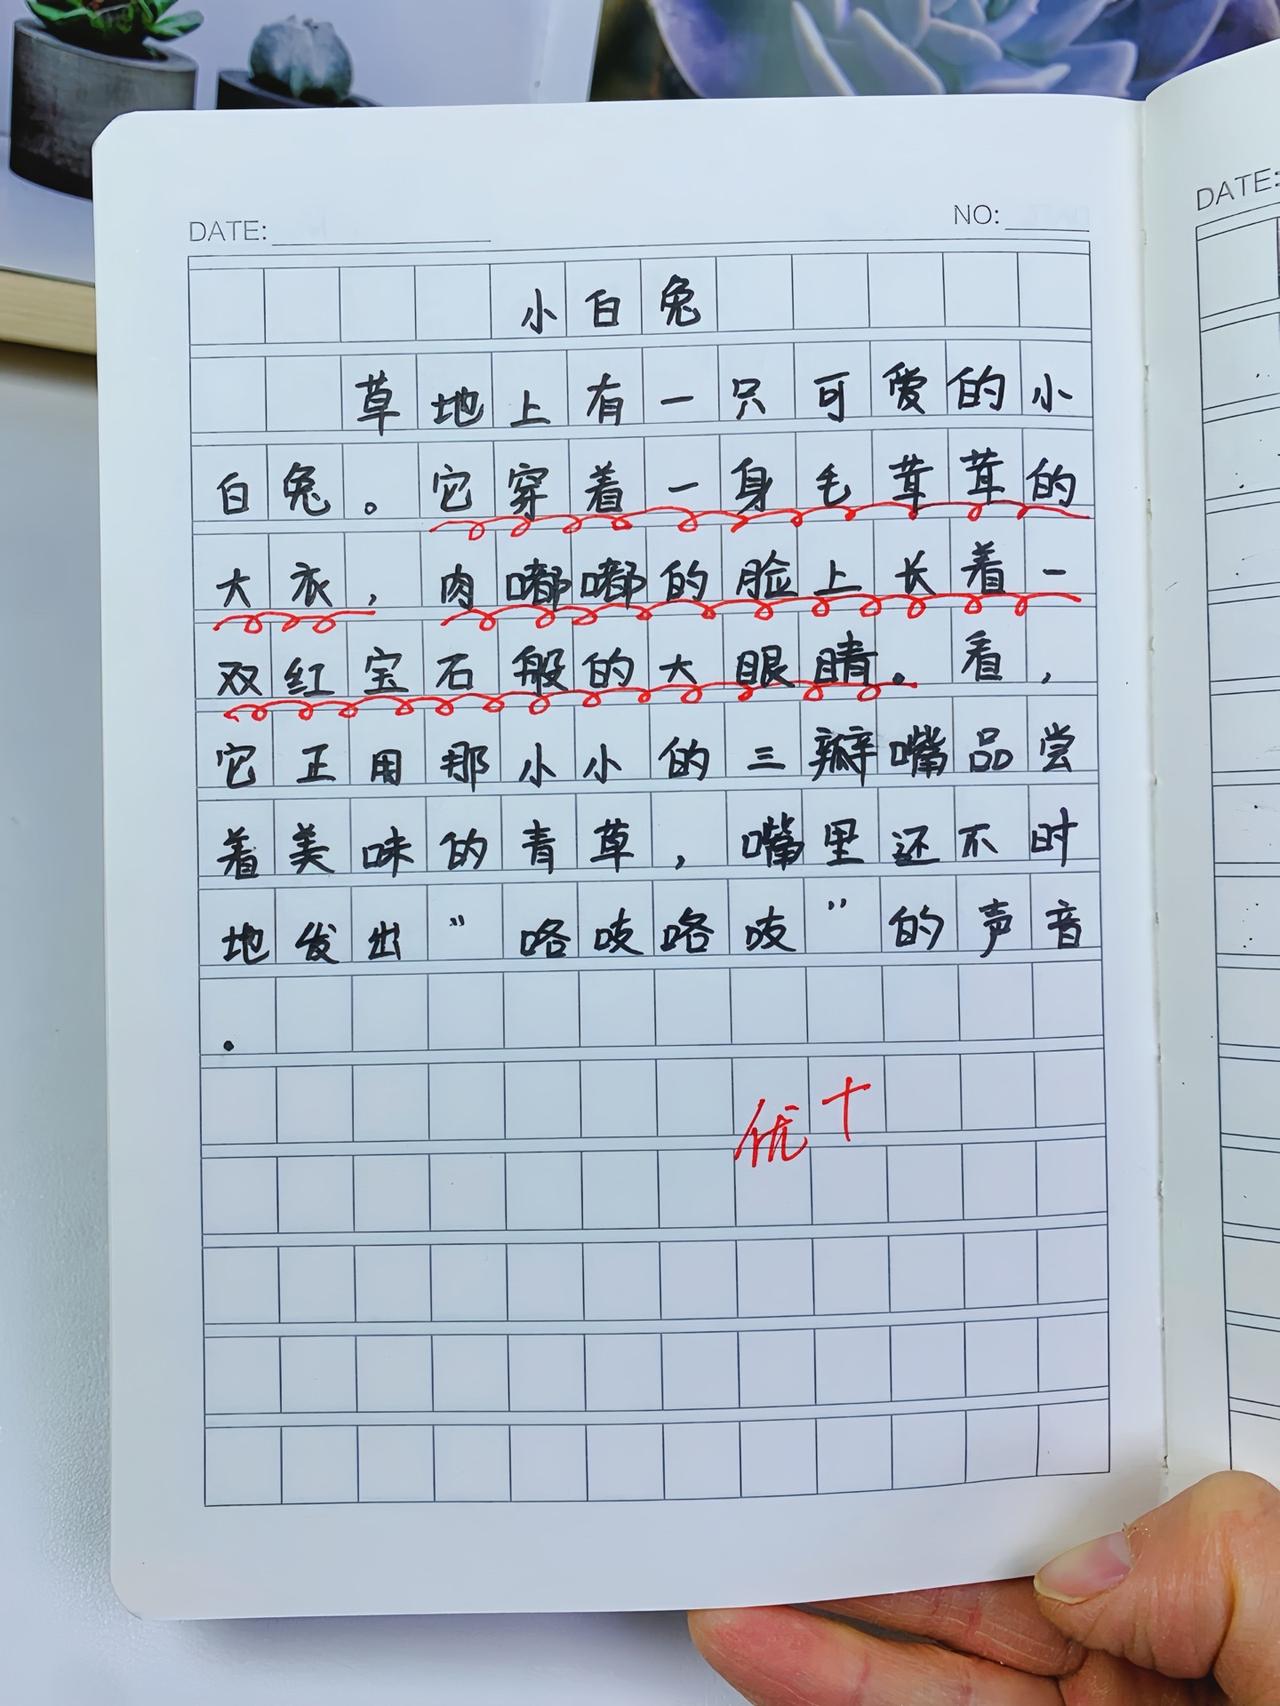 DATE:
NO:
DATE:
小白兔
草地上有一只可爱的小
白兔。它穿着一身毛茸茸的
大衣，肉嘟嘟的脸上长着一
双红宝石般的大眼睛。看，
它正用那小小的三瓣嘴品尝
着美味的青草，嘴里还不时
地发出”咯吱咯吱”的声音
.
优+